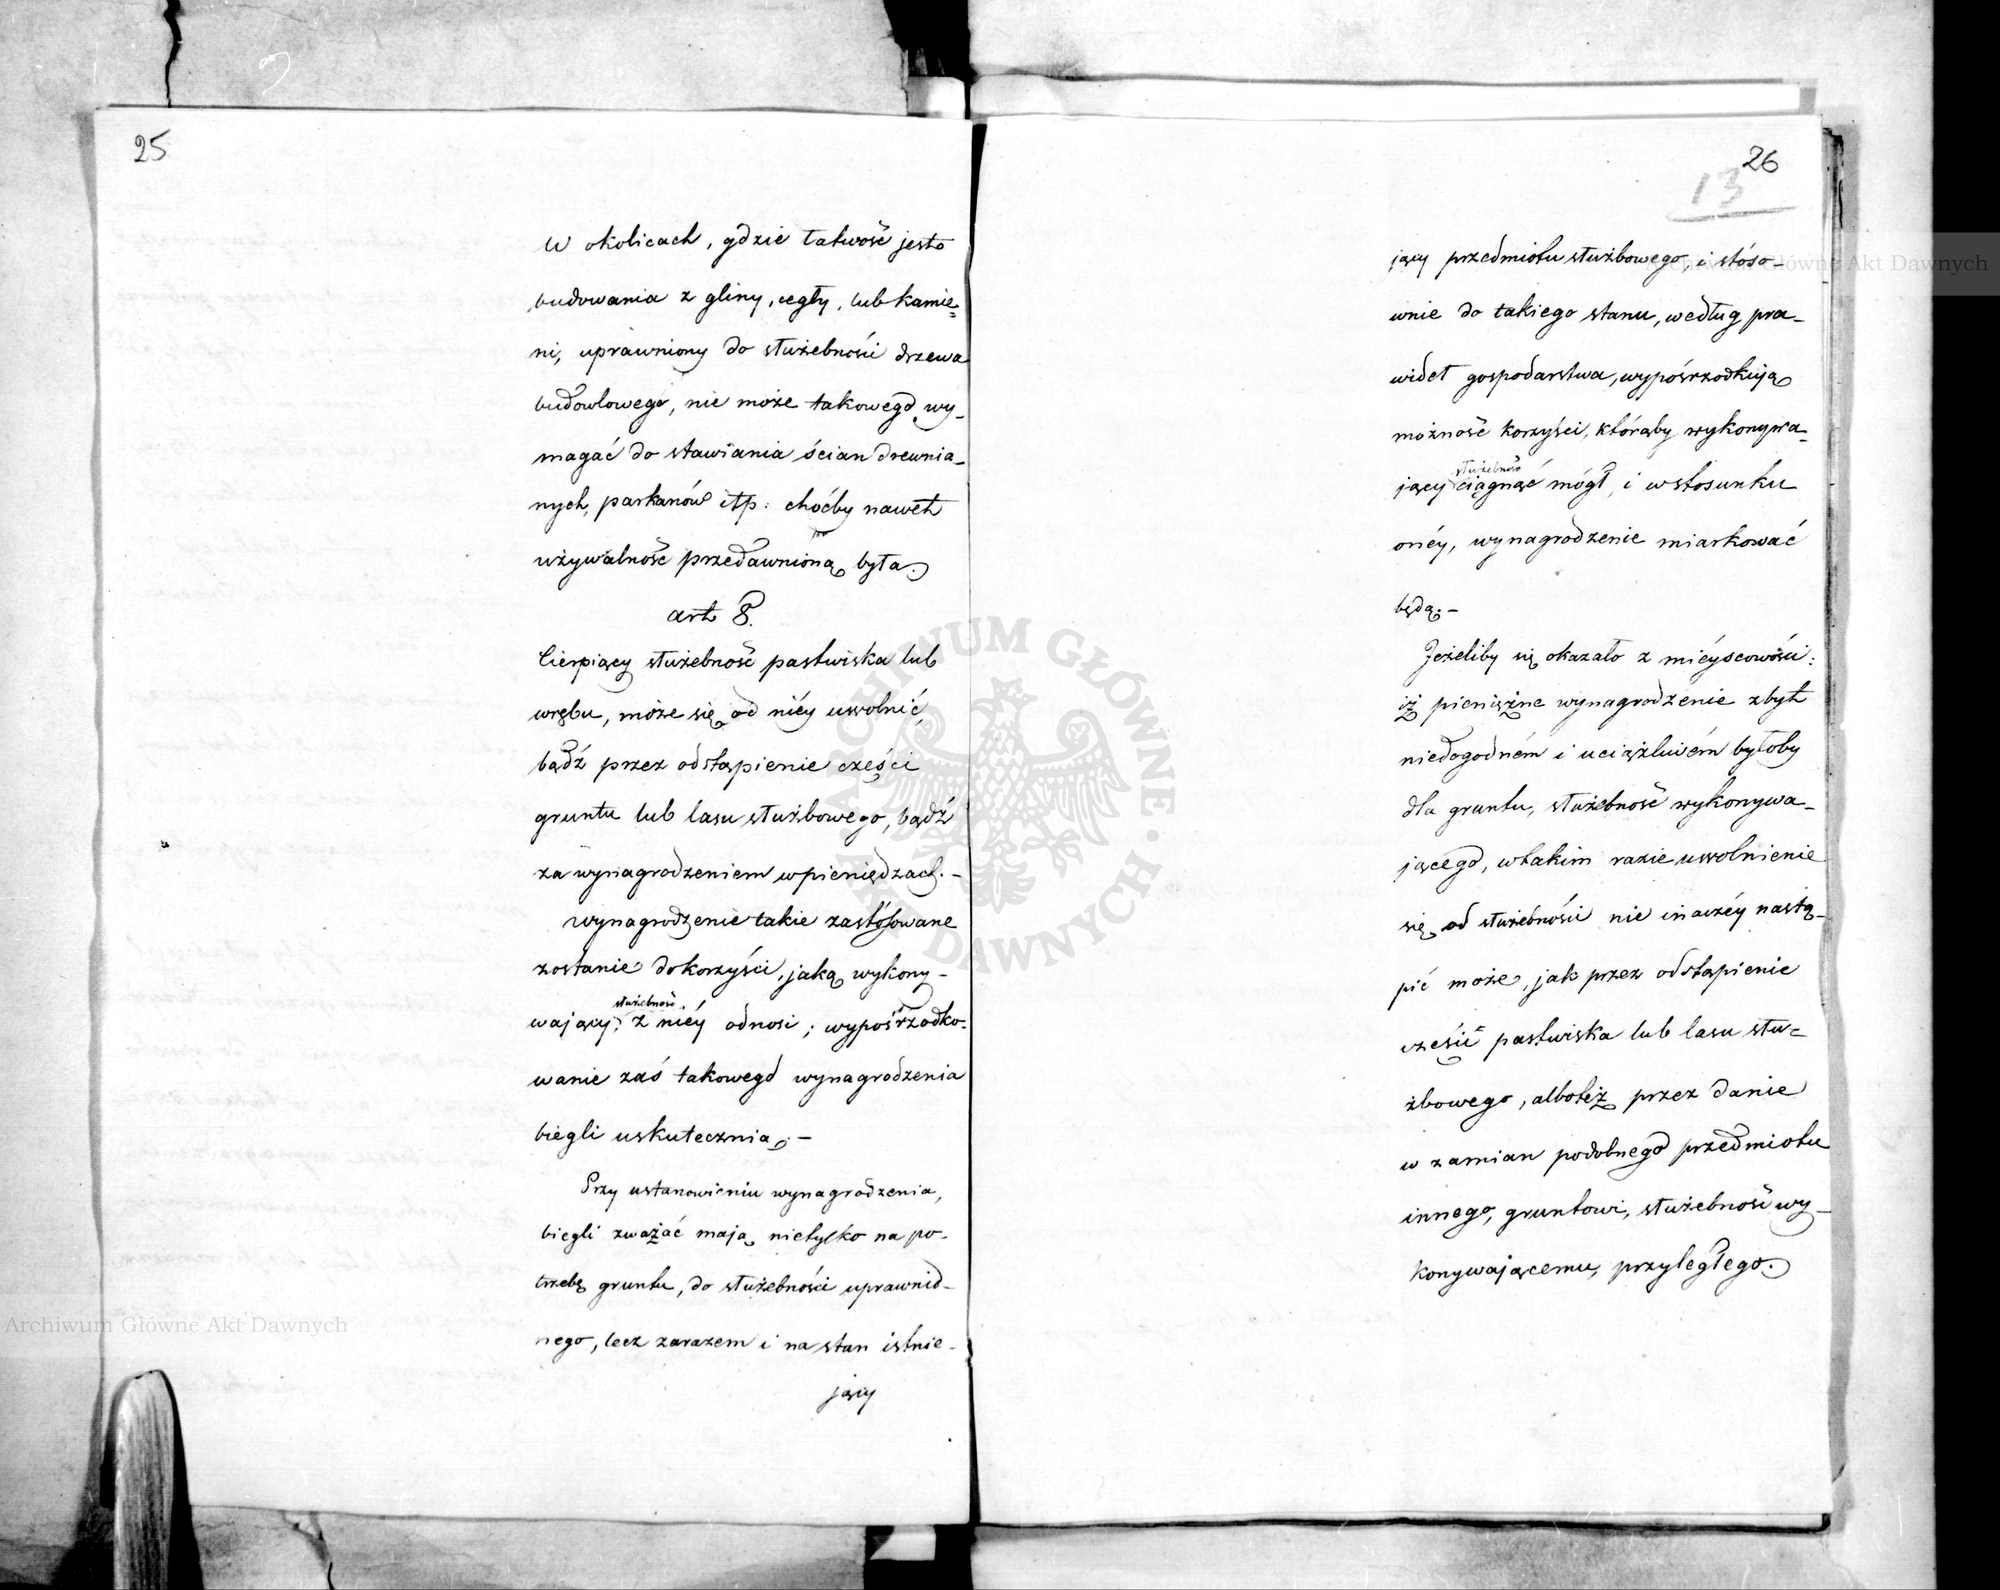 25
W okolicach, gdzie łatwość jest
budowania z gliny, cegły, lub kamie=
ni, uprawniony do służebności drzewa
budowlowego, nie może takowego wy-
magać do stawiania ścian drewnia-
nych, parkanów itp: choćby nawet
używalność przedawnioną była.
art 8.
Cierpiący służebność pastwiska lub
wrębu, może się od niéy uwolnić,
bądź przez odstąpienie części
gruntu lub lasu służbowego, bądź
za wynagrodzeniem w pieniędzach.-
Wynagrodzenie takie zastósowane
zostanie do korzyści, jaką wykony-
służebność
wający, z niéy odnosi; wypośrzodko-
wanie zaś takowego wynagrodzenia
biegli uskutecznią.-
Przy ustanowieniu wynagrodzenia,
biegli zważać mają nietylko na po-
trzebę gruntu, do służebności uprawnio-
nego, lecz zarazem i na stan istnie-
jący
26
13
jący przedmiotu służbowego, i stóso-
wnie do takiego stanu, według pra-
wideł gospodarstwa, wypośrzodkują
możność korzyści, którąby wykonywa-
służebność
jący ciągnąć mógł, i w stosunku
onéy, wynagrodzenie miarkować
będą.-
Jeżeliby się okazało z mieyscowości:
iż pieniężne wynagrodzenie zbyt
niedogodném i uciążliwém byłoby
dla gruntu, służebność wykonywa-
jącego, w takim razie uwolnienie
się od służebności nie inaczéy nastą-
pić może, jak przez odstąpienie
części pastwiska lub lasu słu=
żbowego, alboteż przez danie
w zamian podobnego przedmiotu
innego, gruntowi, służebność wy-
konywającemu, przyległego.
ARCHIWUM GŁÓWNE AKT DAWNYCH
Archiwum Główne Akt Dawnych
Archiwum Główne Akt Dawnych